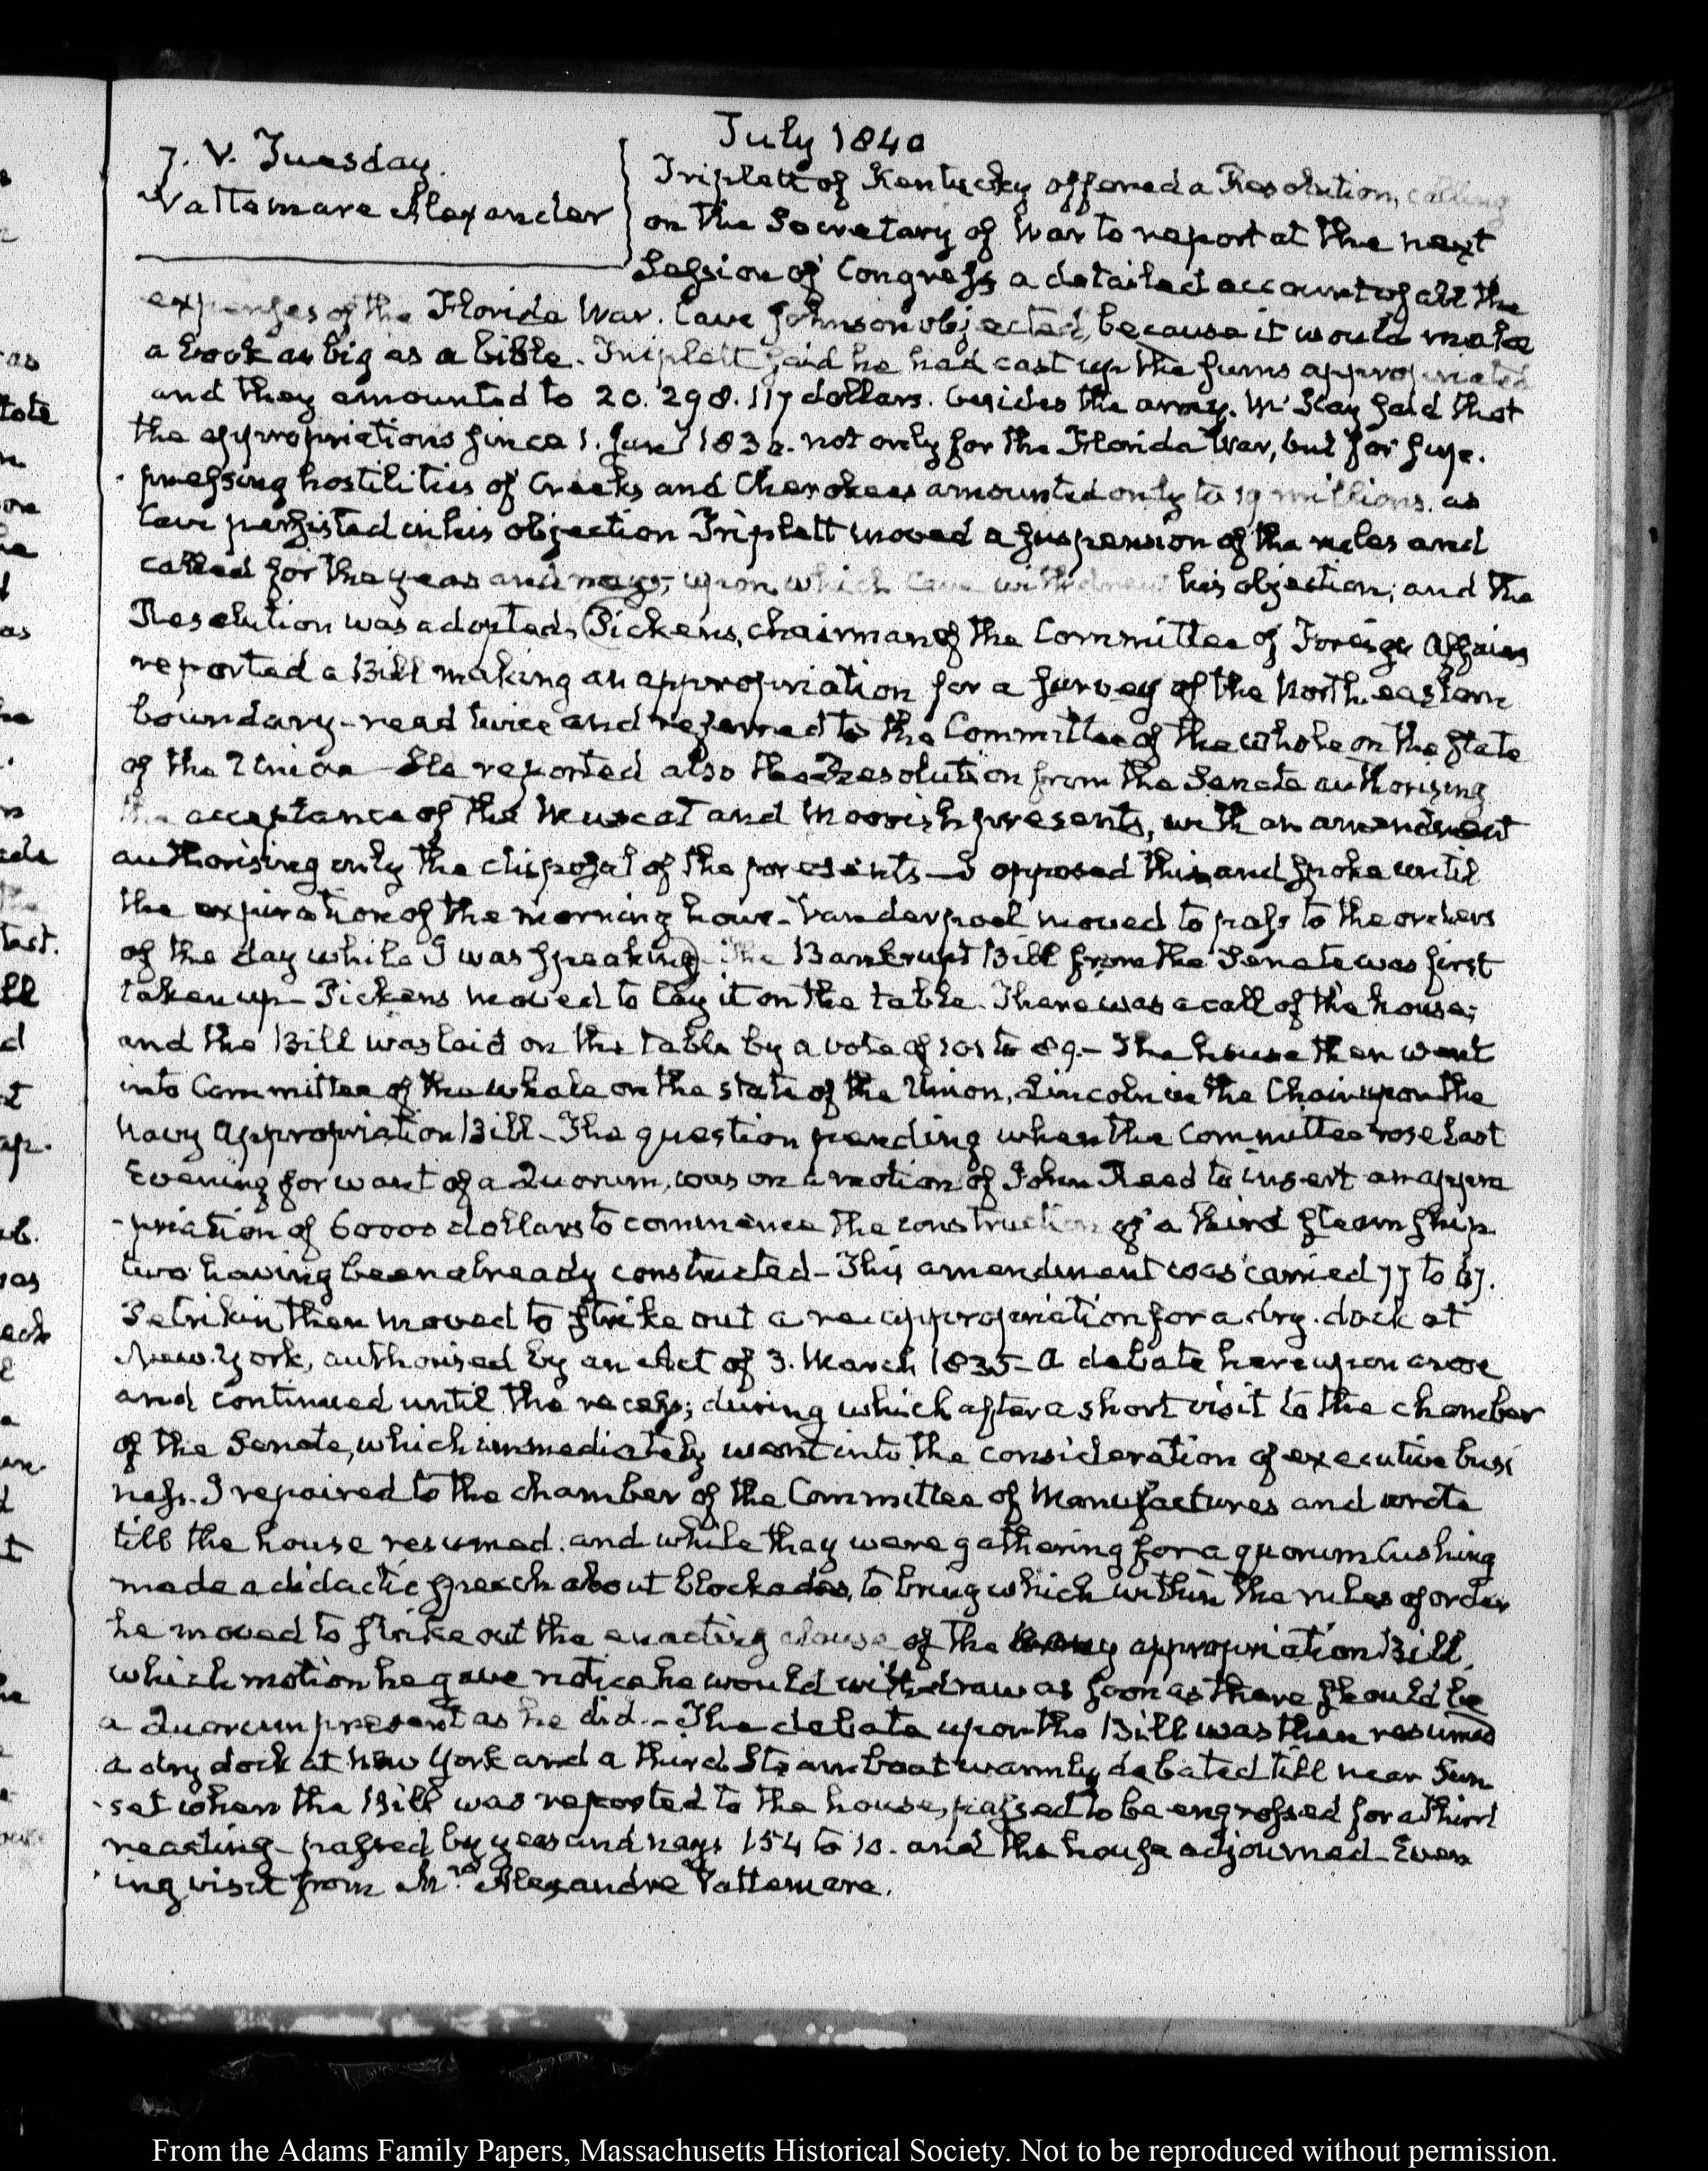 July 1840
7. V. Tuesday.
Vattemare Alexander
Triplett of Kentucky offered a Resolution, calling
on the Secretary of War to report at the next
Session of Congress a detailed account of all the
expenses of the Florida War. Cave Johnson objected, because it would make
a book as big as a bible. Triplett said he had cast up the sums appropriated
and they amounted to 20.298.117 dollars. besides the army. McKay said that
the appropriations since 1. Jany 1836. not only for the Florida War, but for sup-
-pressing hostilities of Creeks and Cherokees amounted only to 19 millions. as
Cave persisted in his objection Triplett moved a suspension of the rules and
called for the yeas and nays; upon which Cave withdrew his objection; and the
Resolution was adopted. Pickens, chairman of the Committee of Foreign Affairs
reported a Bill making an appropriation for a survey of the North-eastern
boundary—read twice and referred to the Committee of the whole on the state
of the Union—He reported also the Resolution from the Senate authorising
the acceptance of the Muscat and Moorish presents, with an amendment
authorising only the disposal of the presents—I opposed this and spoke until
the expiration of the morning hour—Vanderpoel moved to pass to the orders
of the day while I was speaking. The Bankrupt Bill from the Senate was first
taken up—Pickens moved to lay it on the table. There was a call of the house;
and the Bill was laid on the table by a vote of 101 to 89.—The house then went
into Committee of the whole on the state of the Union, Lincoln in the Chair upon the
Navy Appropriation Bill—The question pending when the Committee rose last
Evening for want of a Quorum, was on a motion of John Reed to insert an appro
-priation of 60000 dollars to commence the construction of a third steam ship
two having been already constructed—This amendment was carried 77 to 67.
Petrikin then moved to strike out a reappropriation for a dry-dock at
New-York, authorised by an Act of 3. March 1835—A debate hereupon arose
and continued until the recess; during which after a short visit to the chamber
of the Senate, which immediately went into the consideration of executive busi
ness. I repaired to the chamber of the Committee of Manufactures and wrote
till the house resumed. and while they were gathering for a quorum Cushing
made a didactic speech about blockades, to bring which within the rules of order
he moved to strike out the enacting clause of the Navy appropriation Bill,
which motion he gave notice he would withdraw as soon as there should be
a Quorum present as he did.—The debate upon the Bill was then resumed
a dry dock at New York and a third Steam boat warmly debated till near Sun
-set when the Bill was reported to the house, passed to be engrossed for a third
reading—passed by yeas and nays 154 to 10. and the house adjourned—Even
-ing visit from Mr. Alexandre Vattemare.
From the Adams Family Papers, Massachusetts Historical Society. Not to be reproduced without permission.